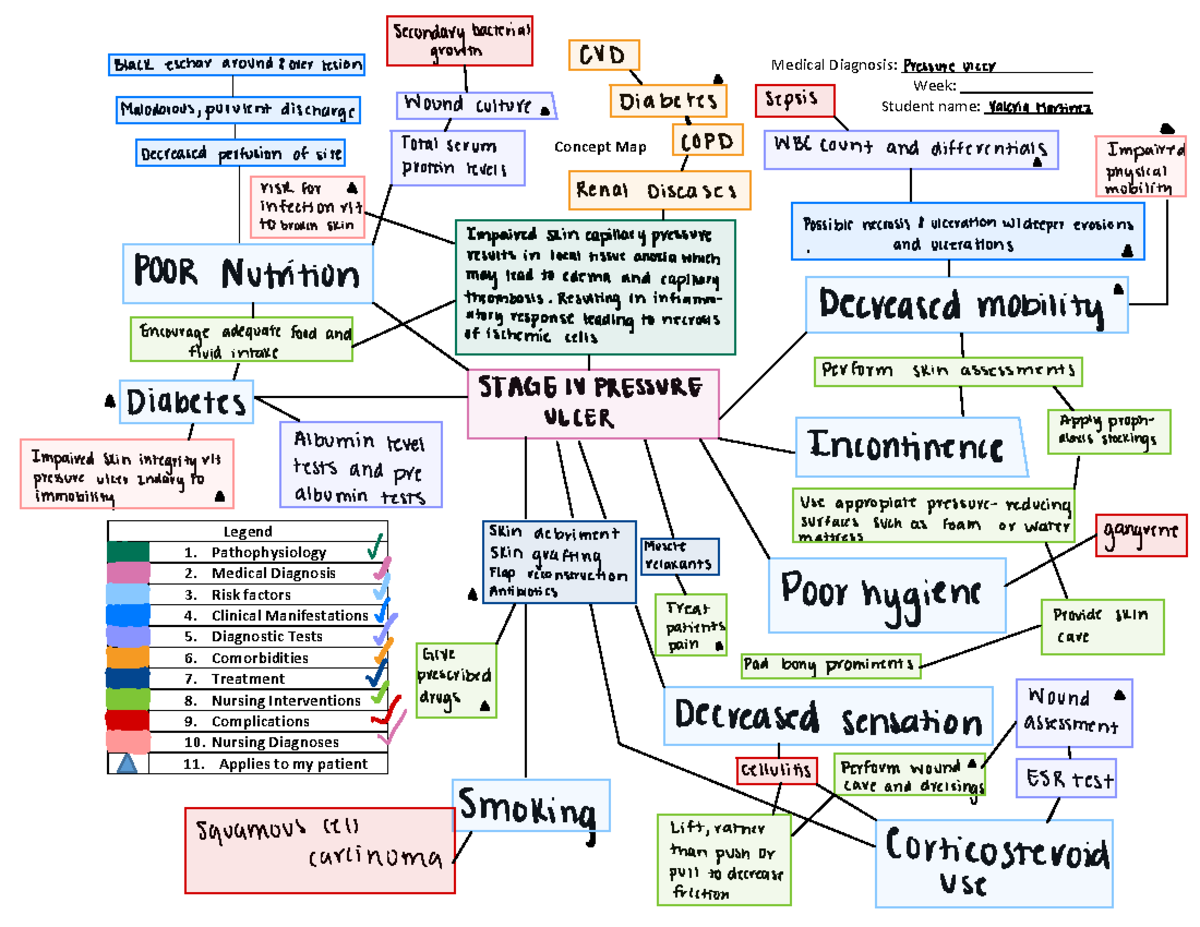 Medical Diagnosis: Pressure ulcer
Week:
Student name: Valeria Martinez
Concept Map
Secondary bacterial
growth
Wound culture
Total serum
protein levels
Black eschar around & over lesion
Malodorous, purulent discharge
Decreased perfusion of site
risk for
infection r/t
to broken skin
POOR Nutrition
Encourage adequate food and
fluid intake
Diabetes
Impaired skin integrity r/t
pressure ulcer 2ndary to
immobility
Albumin level
tests and pre
albumin tests
CVD
Diabetes
COPD
Renal Diseases
Impaired skin capillary pressure
results in local tissue anoxia which
may lead to edema and capillary
thrombosis. Resulting in inflamm-
atory response leading to necrosis
of ischemic cells
STAGE IV PRESSURE
ULCER
Sepsis
WBC count and differentials
Impaired
physical
mobility
Possible necrosis & ulceration w/deeper erosions
and ulcerations
Decreased mobility
Perform skin assessments
Apply proph-
stockings
Incontinence
Use appropiate pressure-reducing
surfaces such as foam or water
mattress
gangrene
Poor hygiene
Provide skin
care
Pad bony prominents
Skin debriment
Skin grafting
Flap reconstruction
Antibiotics
Muscle
relaxants
Treat
patients
pain
Give
prescribed
drugs
Decreased sensation
Wound
assessment
ESR test
cellulitis
Perform wound
care and dressings
Lift, rather
than push or
pull to decrease
friction
Corticosteroid
use
Smoking
Squamous cell
carcinoma
Legend
1. Pathophysiology
2. Medical Diagnosis
3. Risk factors
4. Clinical Manifestations
5. Diagnostic Tests
6. Comorbidities
7. Treatment
8. Nursing Interventions
9. Complications
10. Nursing Diagnoses
11. Applies to my patient